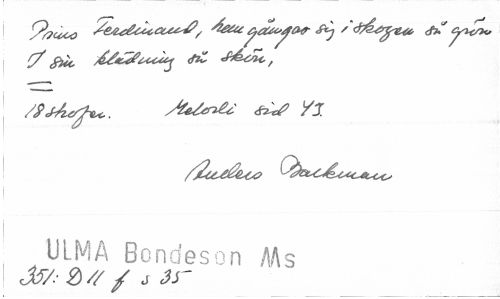 Prins Ferdinand, han gångar sig i skogen så grön
I sin klädning så skön,
18 strofer. Melodi sid 43.
Anders Backman
ULMA Bondeson Ms
351: D 11 f s 35